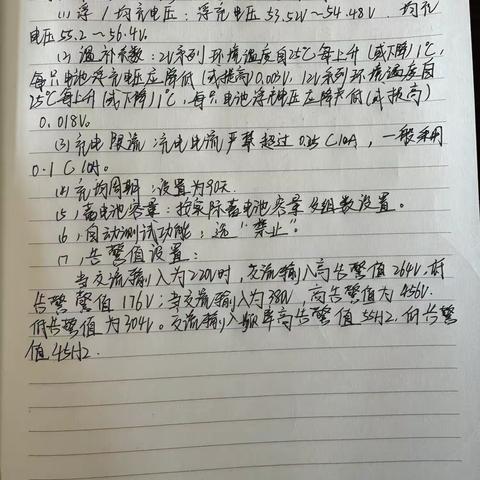 (1) 浮/均充电压：浮充电压 53.52V～54.48V．均充
电压 55.2～56.4V.
(2) 温补系数：2V系列 环境温度自25℃每上升(或下降)1℃,
每只电池浮充电压应降低(或提高)0.003V. 12V系列环境温度自
25℃每上升(或下降)1℃, 每只电池浮充电压应降低(或提高)
0.018V。
(3) 充电限流：充电电流严禁超过 0.25C10A, 一般采用
0.1C10A。
(4) 充均周期：设置为90天.
(5), 蓄电池容量：按实际蓄电池容量及组数设置。
(6, 自动测试功能：选“禁止”.
(7, 告警值设置：
当交流输入为220V时, 交流输入高告警值264V, 低
告警 警值 176V；当交流输入为380V, 高告警值为456V.
低告警值为304V。交流输入频率高告警值55HZ. 低告警
值45HZ.